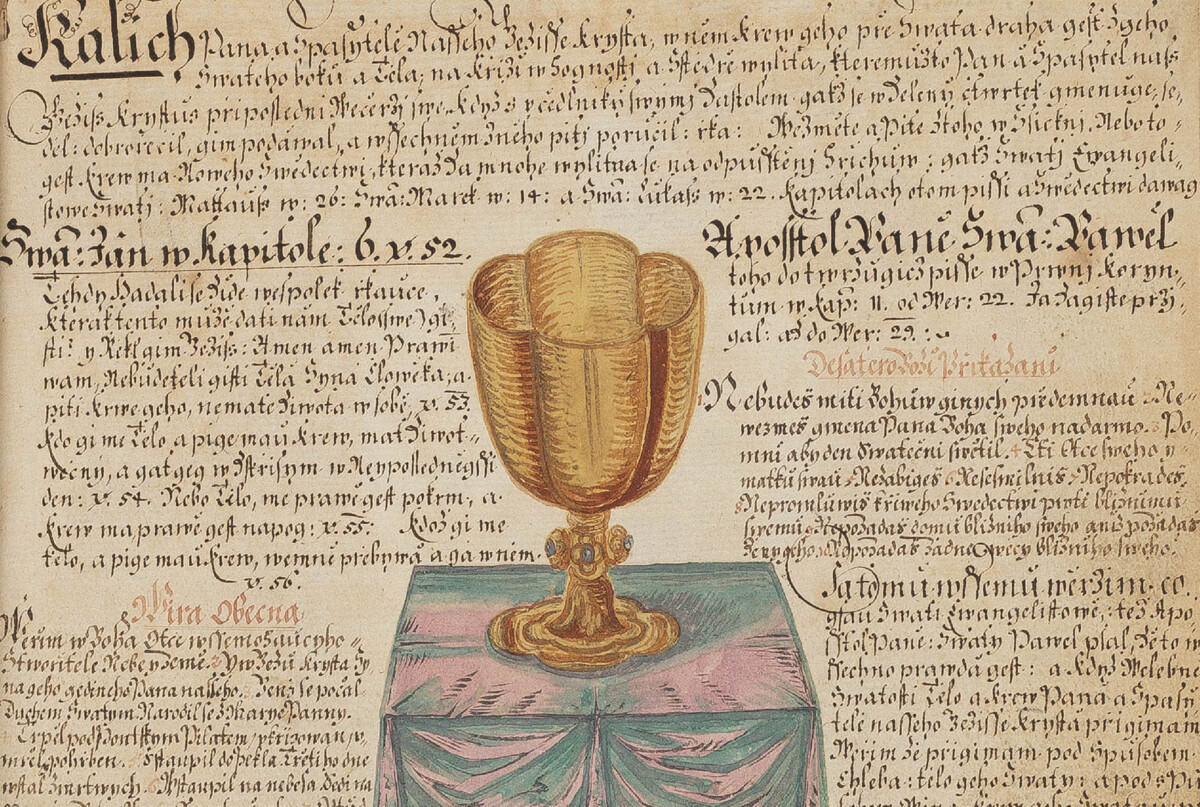 Kalich Pana a Spasytele Nasseho Ježisse Krysta, w nem Krew geho pre Swata draha gest z geho
Swateho boku a Tela, na Križi w Hognosti a Sstedre wylita, kteremužto Pan a Spasytel nass
Gežiss Krystus pri posledni Wečeři swe. Když s včedlniky swymi Za stolem gakž se w Zeleny čtwrtek gmenuge, se-
del: dobrorečil, gim podáwal, a wssechněm z něho piti poručil: řka: Wezměte a Pite z toho wssickni. Nebo to-
gest Krew ma Noweho Swědectwi, kteraž za mnohe wylita se na odpusstěnj Hřichůw: gakž Swatj Ewangeli-
stowe Swatj: Mattauss w: 26: Swa: Marek w: 14: a Swa: Lukass w: 22. Kapitolach o tom pissi a Swědectwi dawagi
Swa: Ján w Kapitole: 6. v. 52.
Tehdy Hadali se Židé wespolek, rkauce,
kterak tento může dati nam Tělo (swe) gi-
sti? y Rekl gim Ježiss: Amen amen Prawi
wam, Nebudeteli gisti Těla Syna Člowěka, a
piti Krwe geho, nemate Života w sobě, v. 53.
Kdo gi me Tělo a pige mau Krew, ma Žiwot-
wěčny, a gať geg wzkřisym w Neyposledněgssi
den: v. 54. Nebo Tělo, me prawě gest pokrm, a-
Krew ma prawě gest napog: v. 55: Kdož gi me
tělo, a pige mau Krew, we mne přebywa a ga w něm.
v. 56.
Wira Obecna
Wěrim w Boha Otce wssemohaucyho-
Stwořitele Nebe y země. 2 Y w Ježisse Krysta Sy-
na geho gedineho Pana nasseho. 3 Genž se počal
Duchem Swatym Narodil se z Marye Panny.
4 Trpěl pod Pontskym Pilatem, vkřižowan, v-
mřel y pohřben. 5 Sstaupil do pekla Třetiho dne
wstal z mrtwych. 6 Wstaupil na nebesa Sedi na
Apossstol Páně Swa: Pawel
toho dotwrzugicz pisse w Prwnj Koryn-
tům w Kap: 11. od Wer: 22. Ja zagiste přy-
gal: až do Wer: 29.
Desatero Boži Přikazani
Nebudeš miti Bohůw ginych předemnau 2 Ne-
wezmeš gmena Pana Boha sweho nadarmo. 3 Po-
mni aby den Swatečni swětil. 4 Cti Otce sweho y
matku swau 5 Nezabigeš 6 Nesesmilniš 7 Nepokradeš
8 Nepromluwiš křiweho Swědectwi proti bližnimu
swemu 9 Nepožadaš domu bližniho sweho aniž požadaš
ženy geho 10 Nepožadaš žadne wěcy bližniho sweho.
Ja tomu wssemu wěřzim co
gsau Swati Ewangelistowe, též Apo-
sstol Páně: Swaty Pawel psal, že to w
ssechno prawda gest: a když Welebne
Swatosti Tělo a Krew Pana a Spasy-
tele nasseho Ježisse Krysta přigimam
Wěrim že přigimam pod Spůsobem
Chleba: tělo geho Swaty: a pod Spů